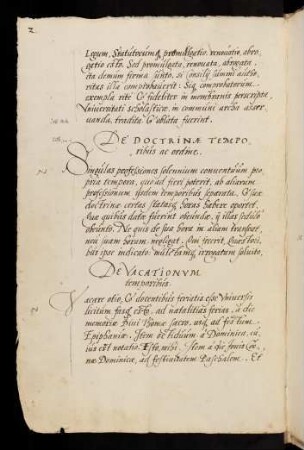 2
Legum, Statutorumq; promulgatio, renouatio, abro,
gatio esto. Sed promulgata, renouata, abrogata
ita demum firma sunto, si consilij summi auctoritas
ritas illa comprobauerit. Siq; comprobatorum
exempla rite & fideliter in membranis perscripta
Vniuersitati scholasticae, in communi archa asser,
uanda, tradita & oblata fuerint.
DE DOCTRINAE TEMPO,
ribus ac ordine.
Singulas professiones solennium conuentuum pro
pria tempora, quoad fieri poterit, ab aliarum
professionum ijsdem temporibus separata, & suae
doctrinae certas statasq; horas habere oportet.
Quae quibus datae fuerint obeundae, ij illas sedulo
obeunto. Ne quis de sua hora in aliam transfert,
neu suam horum negligat. Qui fecerit, quasi lois,
bus ipsi indicatio multctamq; irrogatam soluito.
DE VACATIONVM
temporibus.
Vacare otio, & docentibus feriatis esse Vniuersis
licitum fasq; esto, ad natalitias ferias, à die
memoriae Diui Thomae sacro, usq; ad festum
Epiphaniae. Item hebdomadam à Dominica, cu,
ius est notatio, Esto mihi. Item à quinta feria
Dominicae, ad festiuitatem Paschalem. Et